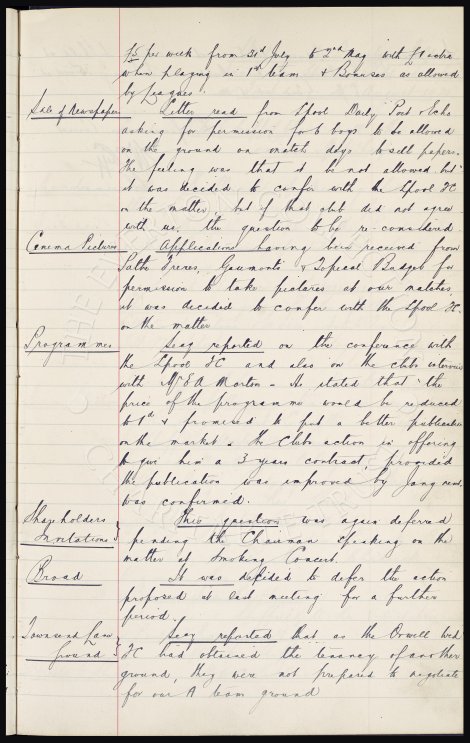 £5 per week from 31st July to 2nd May with £1 extra
when playing in 1st team & Bonuses as allowed
by League.
Sale of Newspapers Letter read from Lpool Daily Post & Echo
asking for permission for 6 boys to be allowed
on the ground on match days to sell papers.
The feeling was that it be not allowed but
it was decided to confer with the Lpool FC
on the matter, but if that club did not agree
with us, the question to be re-considered.
Cinema Pictures Applications having been received from
Pathe Freres, Gaumonts & Topical Budget for
permission to take pictures at our matches
it was decided to confer with the Lpool FC.
on the matter
Programmes Secy reported on the conference with
the Lpool FC and also on the clubs interview
with Mr E A Morton - He stated that the
price of the programme would be reduced
to 1d & promised to put a better publication
on the market. The clubs action in offering
to give him a 3 years contract, provided
the publication was improved by Jany next,
was confirmed.
Shareholders This question was again deferred
Invitations pending the Chairman speaking on the
matter at Smoking Concert.
Broad It was decided to defer the action
proposed at last meeting for a further
period.
Townsend Lane Secy reported that as the Orwell Wed
Ground FC had obtained the tenancy of another
ground, they were not prepared to negotiate
for our A team ground